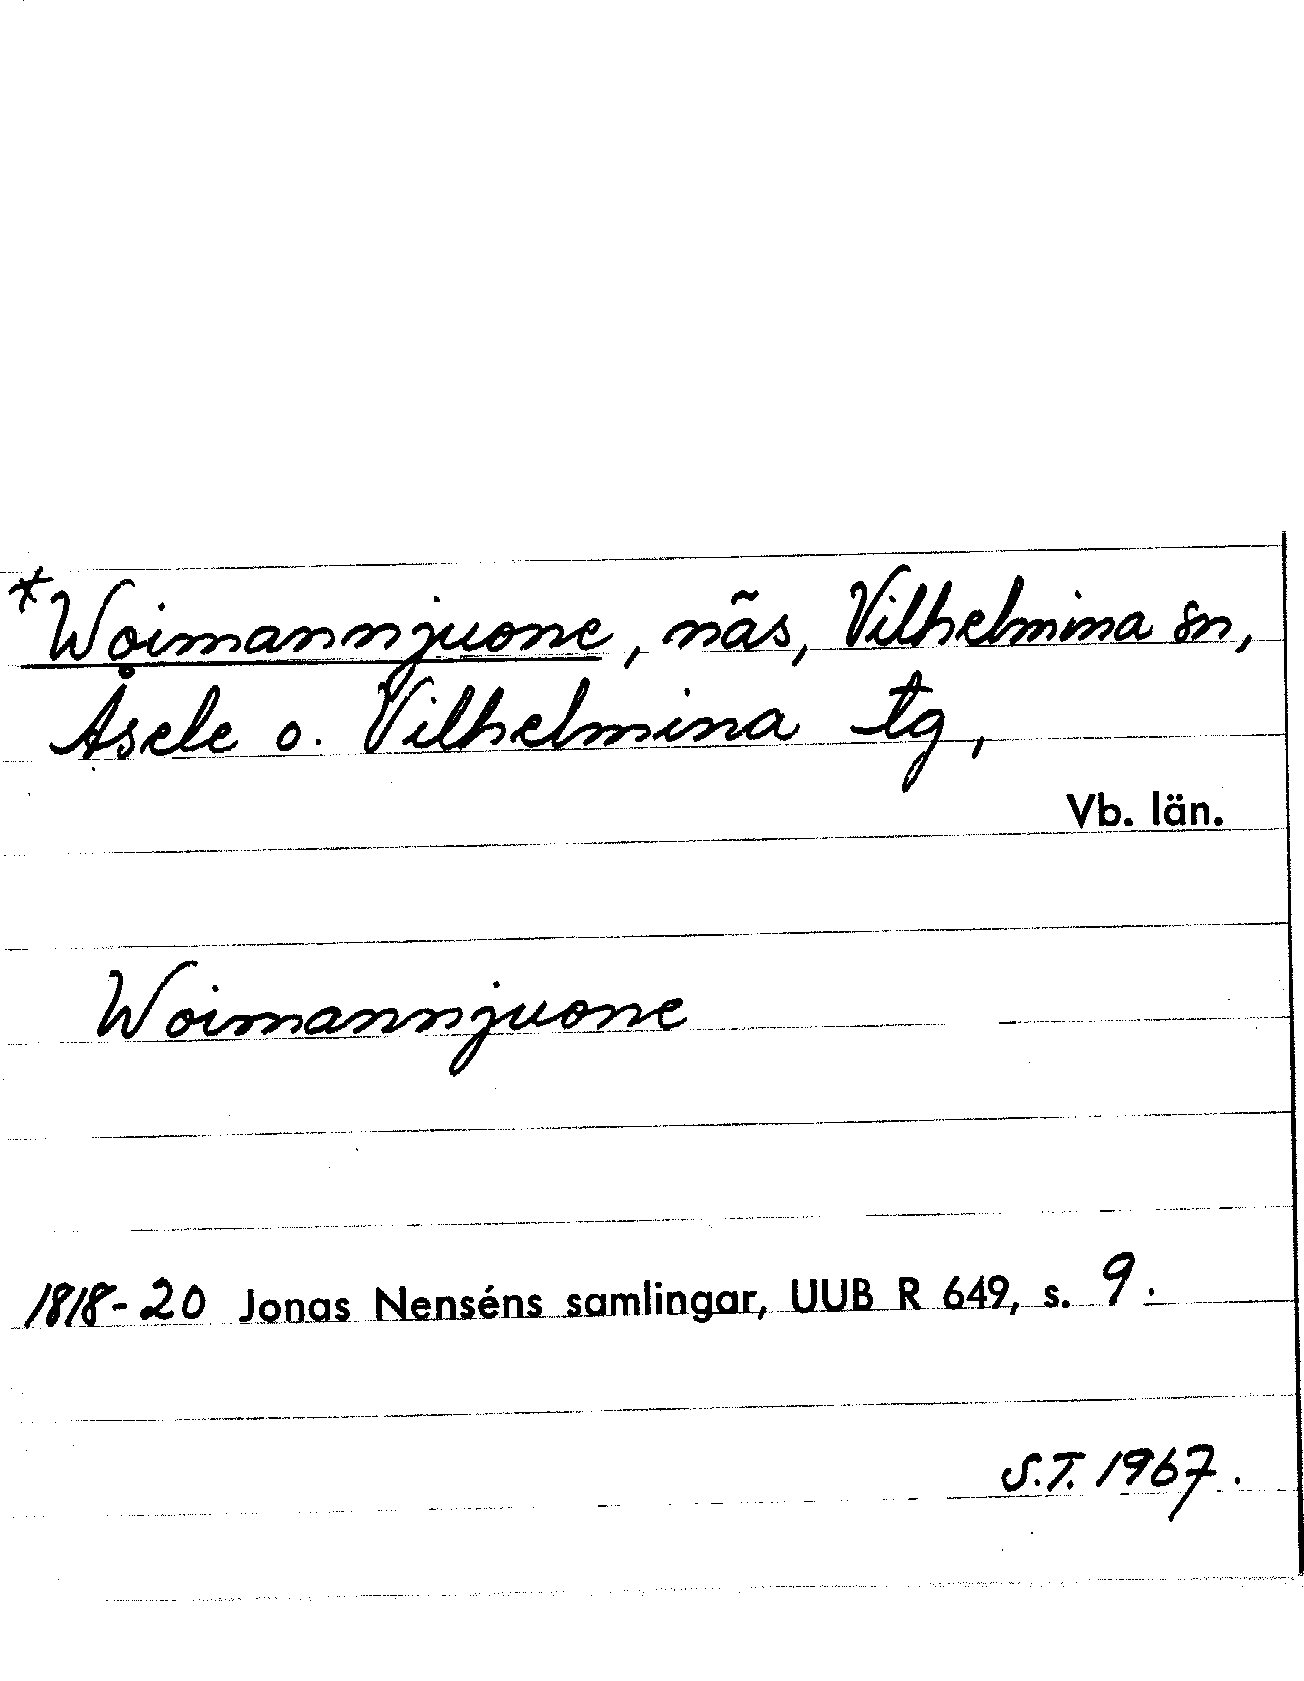 *Woimannjuone, näs, Vilhelmina sn,
Åsele o. Vilhelmina tg,
Vb. län.
Woimannjuone
1818-20 Jonas Nenséns samlingar, UUB R 649, s. 9.
S.T. 1967.